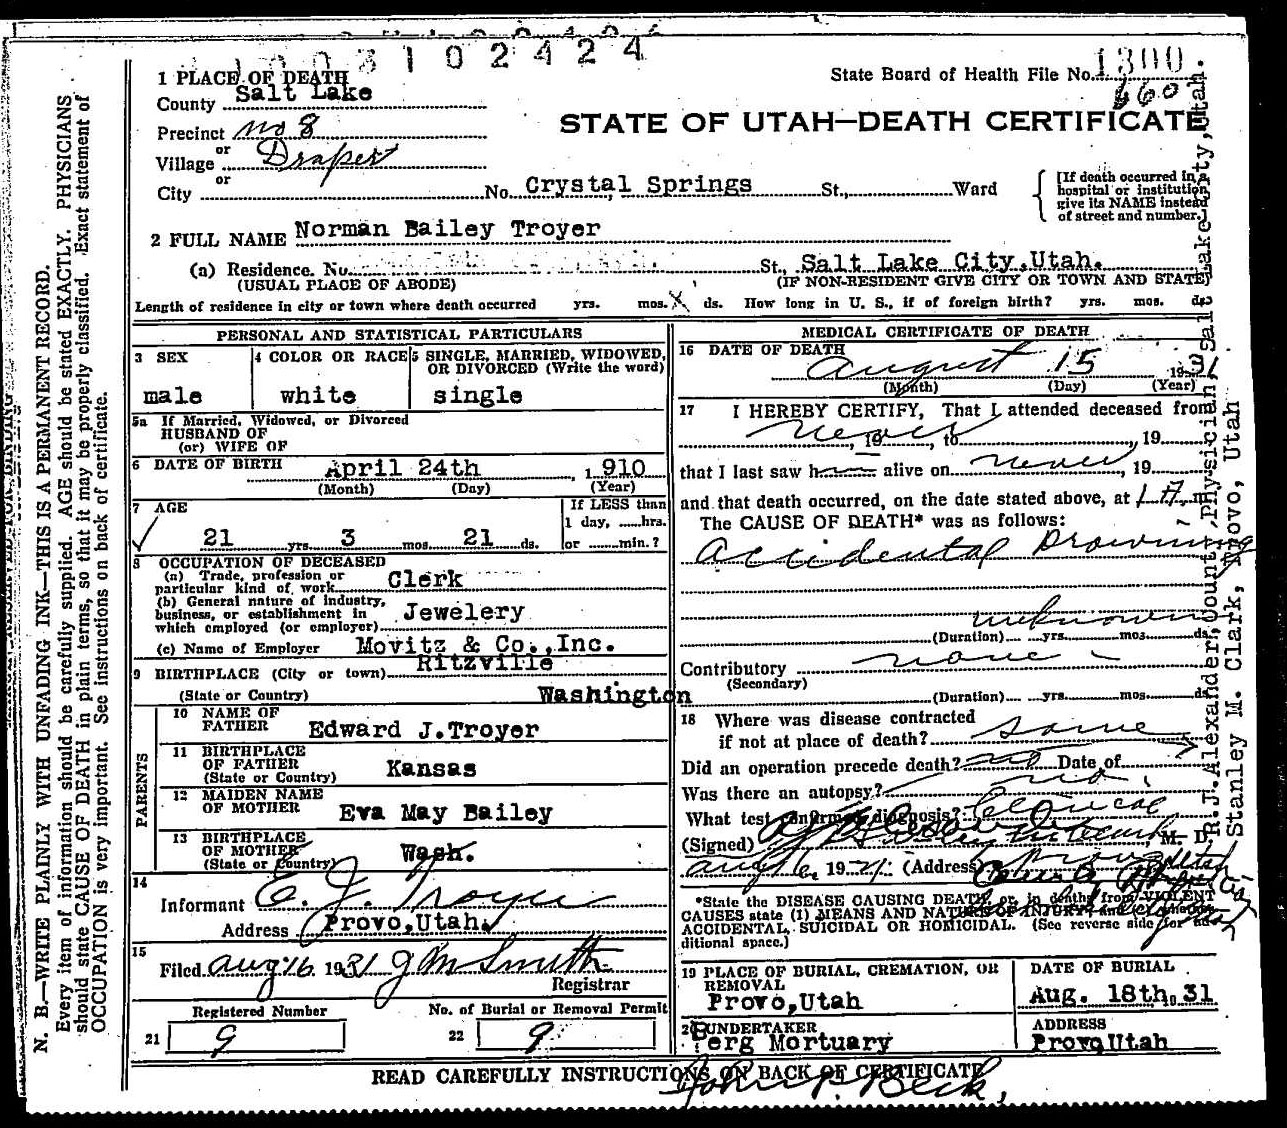 1003102424
State Board of Health File No. 1300
660
STATE OF UTAH—DEATH CERTIFICATE
1 PLACE OF DEATH
County Salt Lake
Precinct No 8
or
Village Draper
or
City No. Crystal Springs St., Ward
[If death occurred in a hospital or institution, give its NAME instead of street and number.]
2 FULL NAME Norman Bailey Troyer
(a) Residence. No. St., Salt Lake City, Utah.
(USUAL PLACE OF ABODE) (IF NON-RESIDENT GIVE CITY OR TOWN AND STATE)
Length of residence in city or town where death occurred yrs. mos. X ds. How long in U. S., if of foreign birth? yrs. mos. ds.
PERSONAL AND STATISTICAL PARTICULARS
3 SEX
male
4 COLOR OR RACE
white
5 SINGLE, MARRIED, WIDOWED,
OR DIVORCED (Write the word)
single
5a If Married, Widowed, or Divorced
HUSBAND OF
(or) WIFE OF
6 DATE OF BIRTH April 24th, 1910
(Month) (Day) (Year)
7 AGE
21 yrs. 3 mos. 21 ds.
If LESS than
1 day, ......hrs.
or ......min.?
8 OCCUPATION OF DECEASED
(a) Trade, profession or
particular kind of work Clerk
(b) General nature of industry,
business, or establishment in
which employed (or employer) Jewelery
(c) Name of Employer Movitz & Co., Inc.
9 BIRTHPLACE (City or town) Ritzville
(State or Country) Washington
PARENTS
10 NAME OF
FATHER Edward J. Troyer
11 BIRTHPLACE
OF FATHER
(State or Country) Kansas
12 MAIDEN NAME
OF MOTHER Eva May Bailey
13 BIRTHPLACE
OF MOTHER
(State or Country) Wash.
14
Informant E. J. Troyer
Address Provo, Utah.
15
Filed Aug 16 1931 J M Smith
Registrar
Registered Number
21 9
No. of Burial or Removal Permit
22 9
MEDICAL CERTIFICATE OF DEATH
16 DATE OF DEATH
August 15 1931
(Month) (Day) (Year)
17 I HEREBY CERTIFY, That I attended deceased from
never, 19 , to , 19
that I last saw h alive on never, 19
and that death occurred, on the date stated above, at 1 A. m
The CAUSE OF DEATH* was as follows:
Accidental Drowning
unknown
(Duration) yrs. mos. ds.
Contributory none
(Secondary)
(Duration) yrs. mos. ds.
18 Where was disease contracted
if not at place of death? same
Did an operation precede death? no Date of
Was there an autopsy? no
What test confirmed diagnosis? Clinical
(Signed) M. D.
Aug 16, 1931 (Address) Provo Utah
*State the DISEASE CAUSING DEATH, or, in deaths from VIOLENT
CAUSES state (1) MEANS AND NATURE OF INJURY; and
ACCIDENTAL, SUICIDAL OR HOMICIDAL. (See reverse side for ad-
ditional space.)
19 PLACE OF BURIAL, CREMATION, OR
REMOVAL
Provo, Utah
DATE OF BURIAL
Aug. 18th, 31
20 UNDERTAKER
Berg Mortuary
ADDRESS
Provo Utah
READ CAREFULLY INSTRUCTIONS ON BACK OF CERTIFICATE
John P. Beck,
N. B.—WRITE PLAINLY WITH UNFADING INK—THIS IS A PERMANENT RECORD.
Every item of information should be carefully supplied. AGE should be stated EXACTLY. PHYSICIANS
should state CAUSE OF DEATH in plain terms, so that it may be properly classified. Exact statement of
OCCUPATION is very important. See instructions on back of certificate.
R.J. Alexander, County Physician, Salt Lake City, Utah.
Stanley M. Clark, Provo, Utah